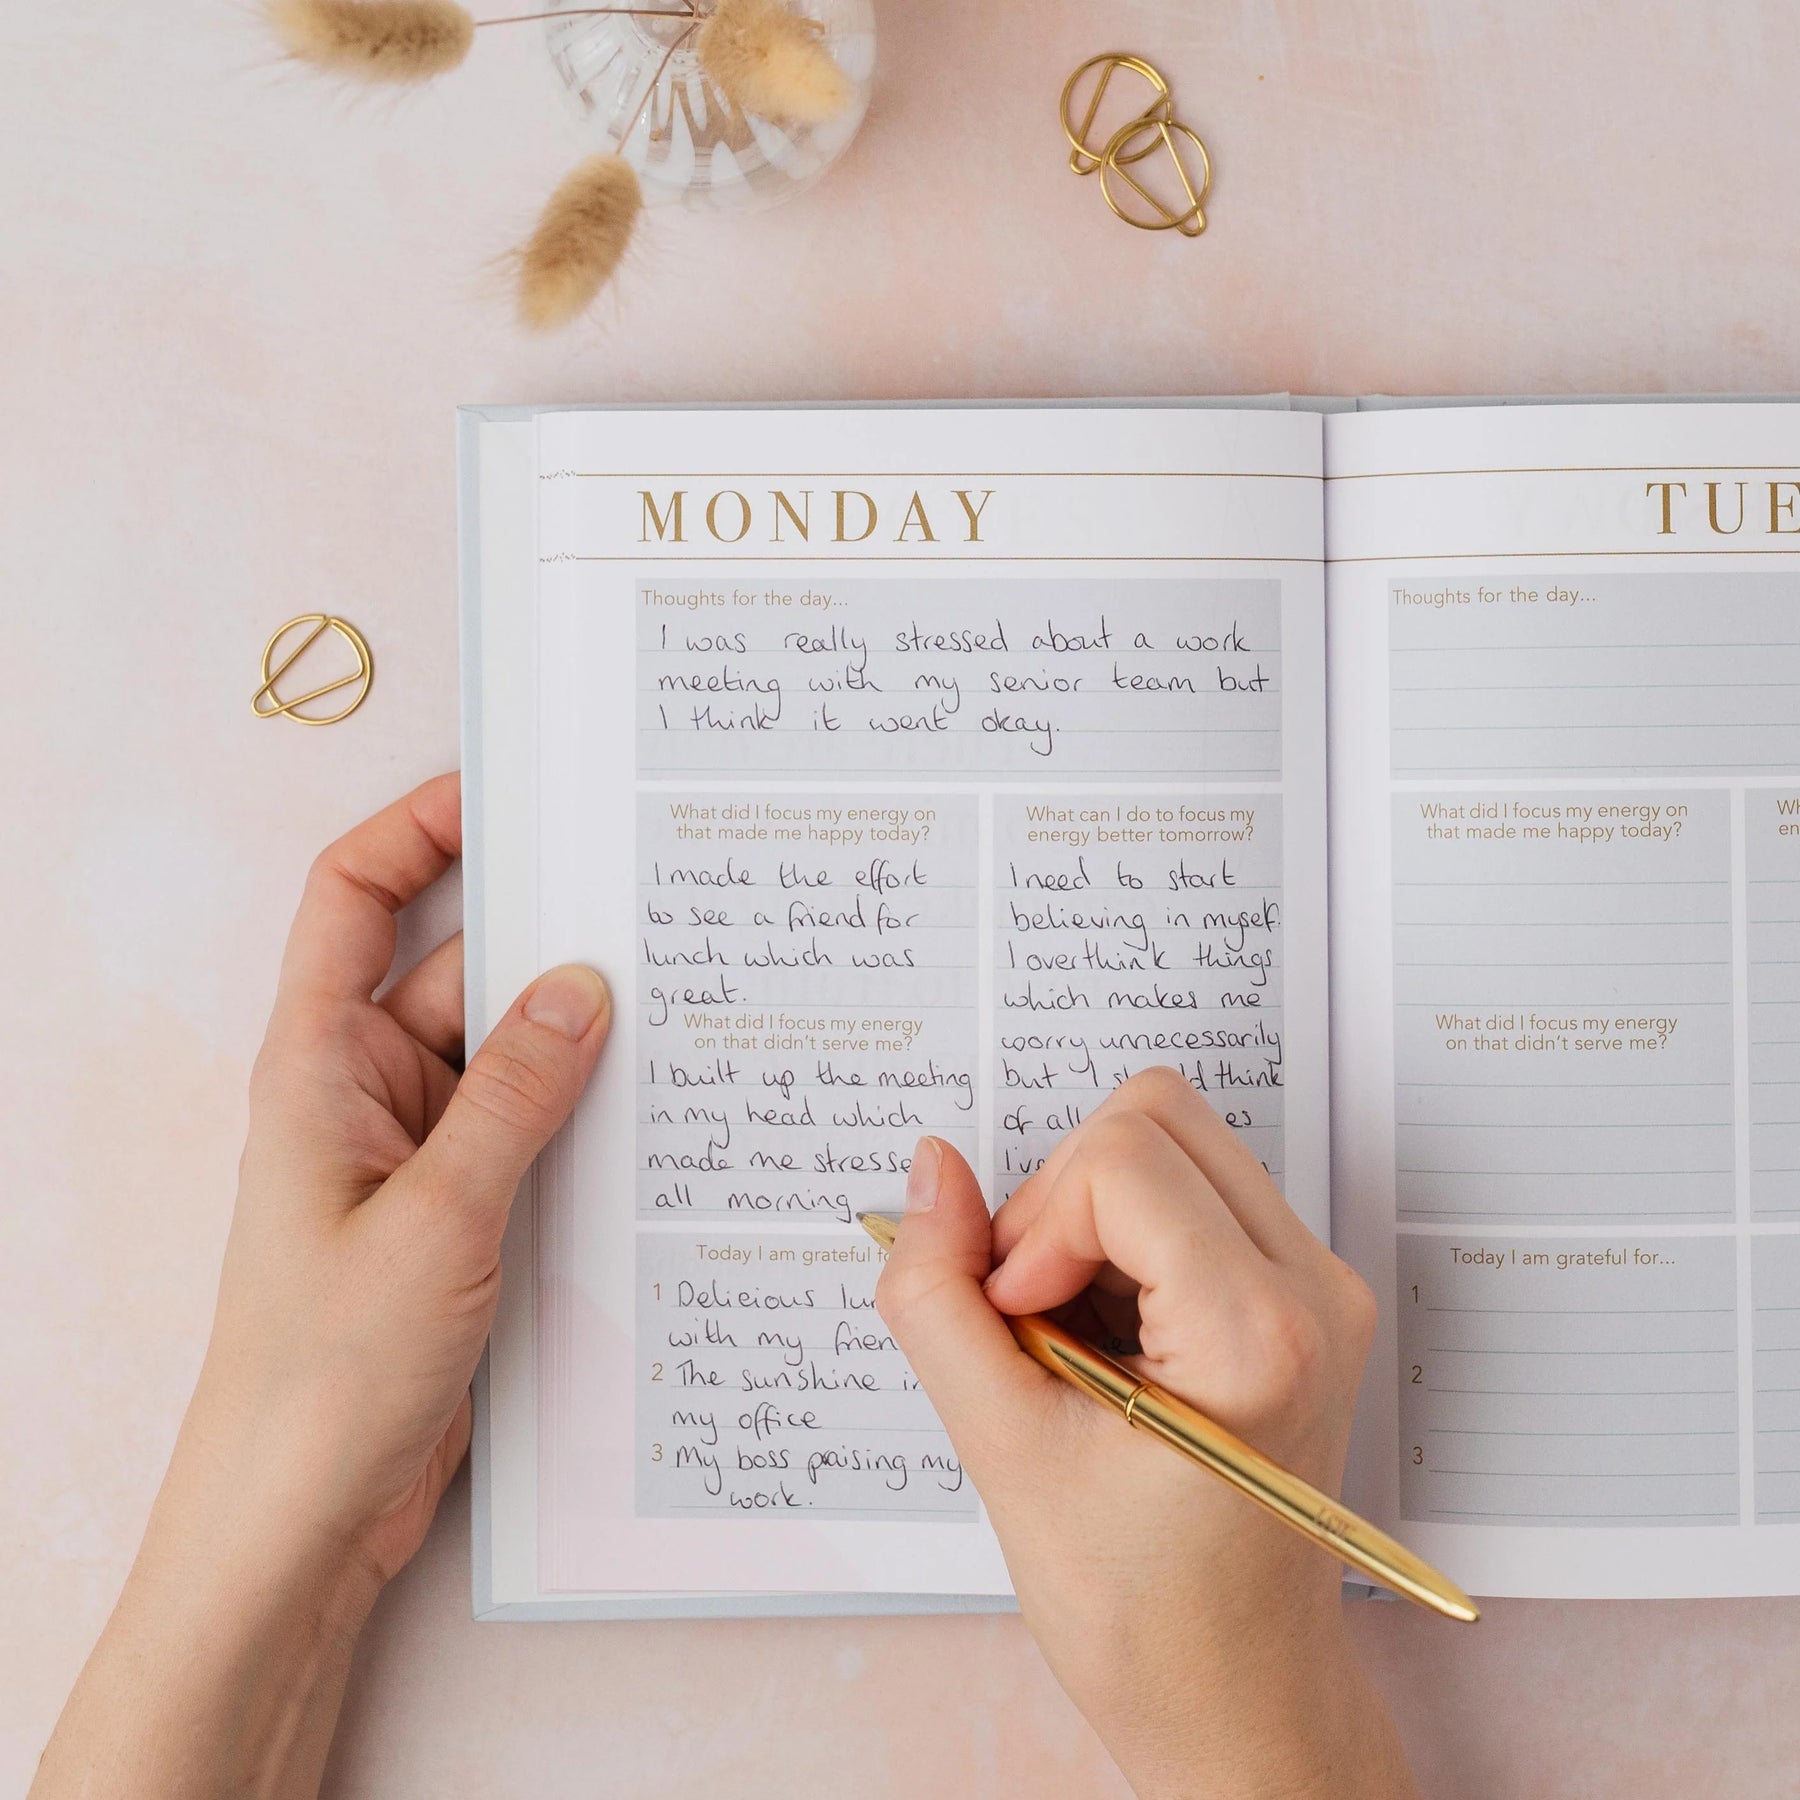 MONDAY
Thoughts for the day...
I was really stressed about a work
meeting with my senior team but
I think it went okay.
What did I focus my energy on
that made me happy today?
I made the effort
to see a friend for
lunch which was
great.
What did I focus my energy
on that didn't serve me?
I built up the meeting
in my head which
made me stresse
all morning
What can I do to focus my
energy better tomorrow?
I need to start
believing in myself.
I overthink things
which makes me
worry unnecessarily
but I should think
of all
I've
Today I am grateful
1 Delicious
with my frien
2 The sunshine in
my office
3 My boss praising my
work.
TUE
Thoughts for the day...
What did I focus my energy on
that made me happy today?
What did I focus my energy
on that didn't serve me?
Today I am grateful for...
1
2
3